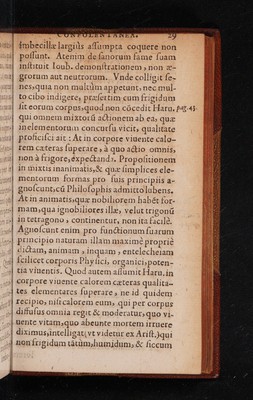 CONSOLENTANEA. 29
imbecillæ largiùs assumpta coquere non
possunt. Atenim de sanorum fame suam
instituit Ioub. demonstrationem, non æ-
grorum aut neutrorum. Vnde colligit se-
nes, quia non multùm appetunt, nec mul-
to cibo indigere, præsertim cum frigidum
sit eorum corpus, quod non cõcedit Haru.
pag. 43.
qui omnem mixtorũ actionem ab ea, quæ
in elementorum concursu vicit, qualitate
proficisci ait: At in corpore viuente calo-
rem cæteras superare, à quo actio omnis,
non à frigore, expectanda. Propositionem
in mixtis inanimatis, & quæ simplices ele-
mentorum formas pro suis principiis a-
gnoscunt, cũ Philosophis admitto lubens.
At in animatis, quæ nobiliorem habẽt for-
mam, qua ignobiliores illæ, velut trigonũ
in tetragono, continentur, non ita facilè.
Agnoscunt enim pro functionum suarum
principio naturam illam maximè propriè
dictam, animam, inquam, entelecheiam
scilicet corporis Physici, organici, poten-
tia viuentis. Quod autem assumit Haru. in
corpore viuente calorem cæteras qualita-
tes elementares superare, ne id quidem
recipio, nisi calorem eum, qui per corpus
diffusus omnia regit & moderatur, quo vi-
uente vitam, quo abeunte mortem irruere
diximus, intelligat (vt videtur ex Arist.) qui
non frigidum tãtùm, humidum, & siccum